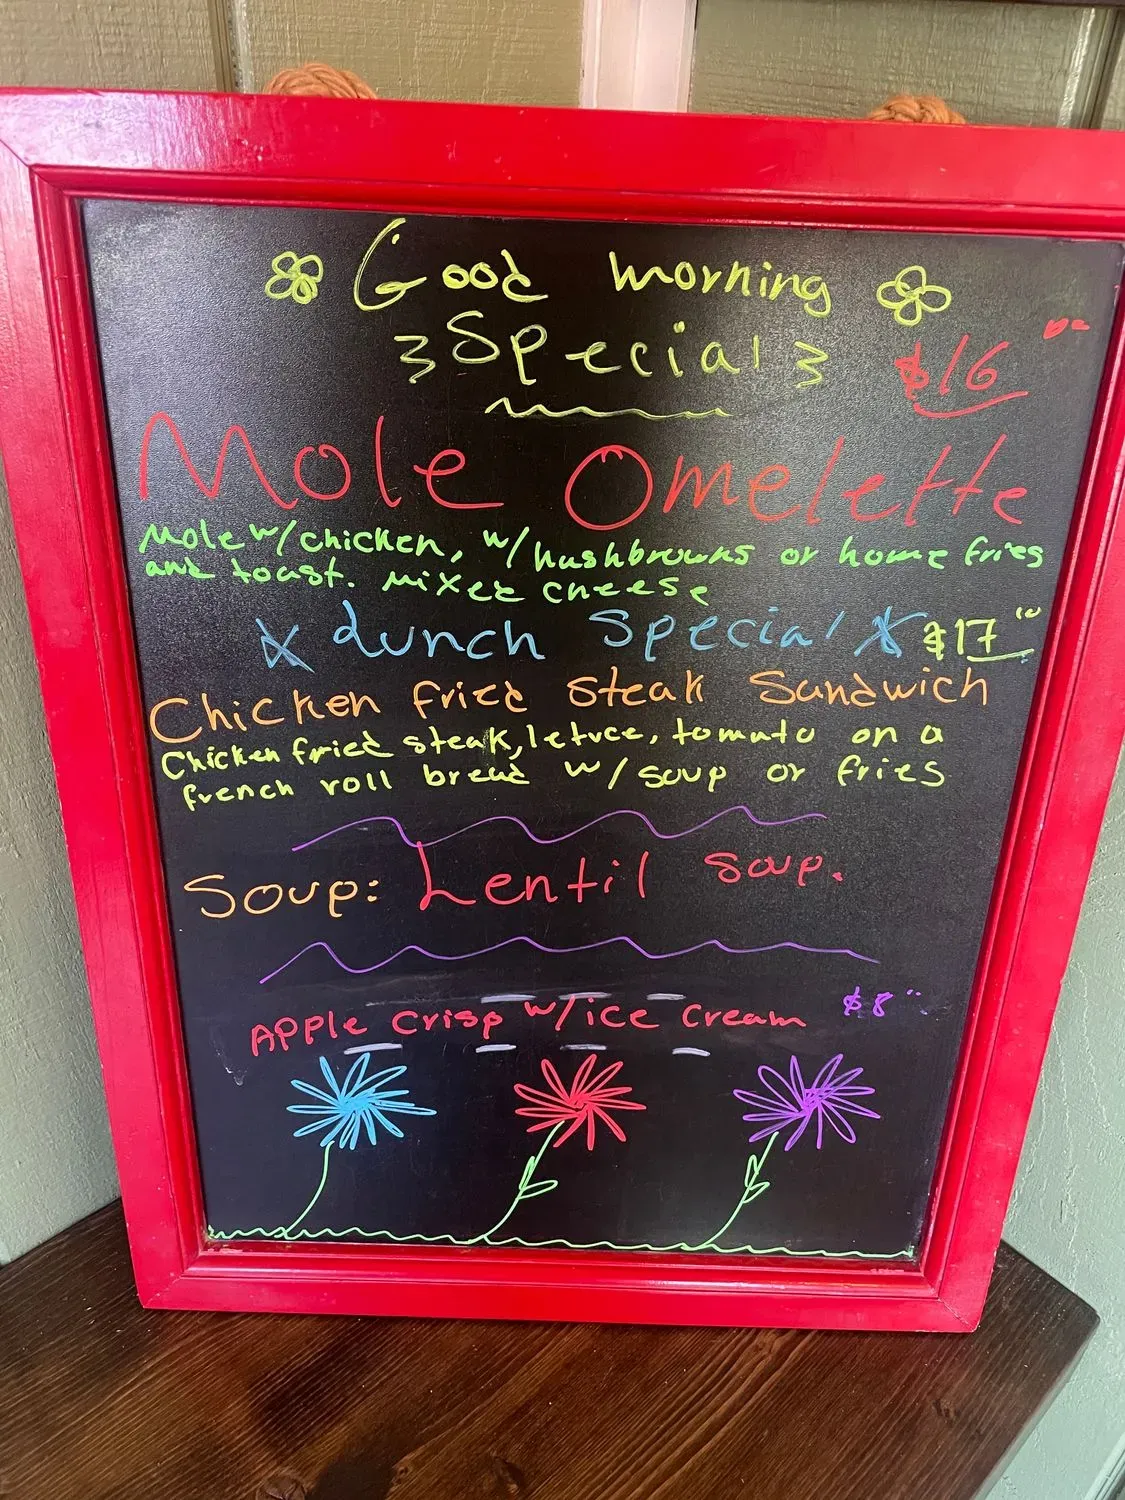 Good morning
Special
$16 00
Mole Omelette
Mole w/chicken, w/hashbrowns or home fries
and toast. mixed cheese
Lunch Special $17 00
Chicken fried steak Sandwich
Chicken fried steak, letuce, tomato on a
french roll bread w/soup or fries
Soup: Lentil soup.
Apple crisp w/ice cream $8 00